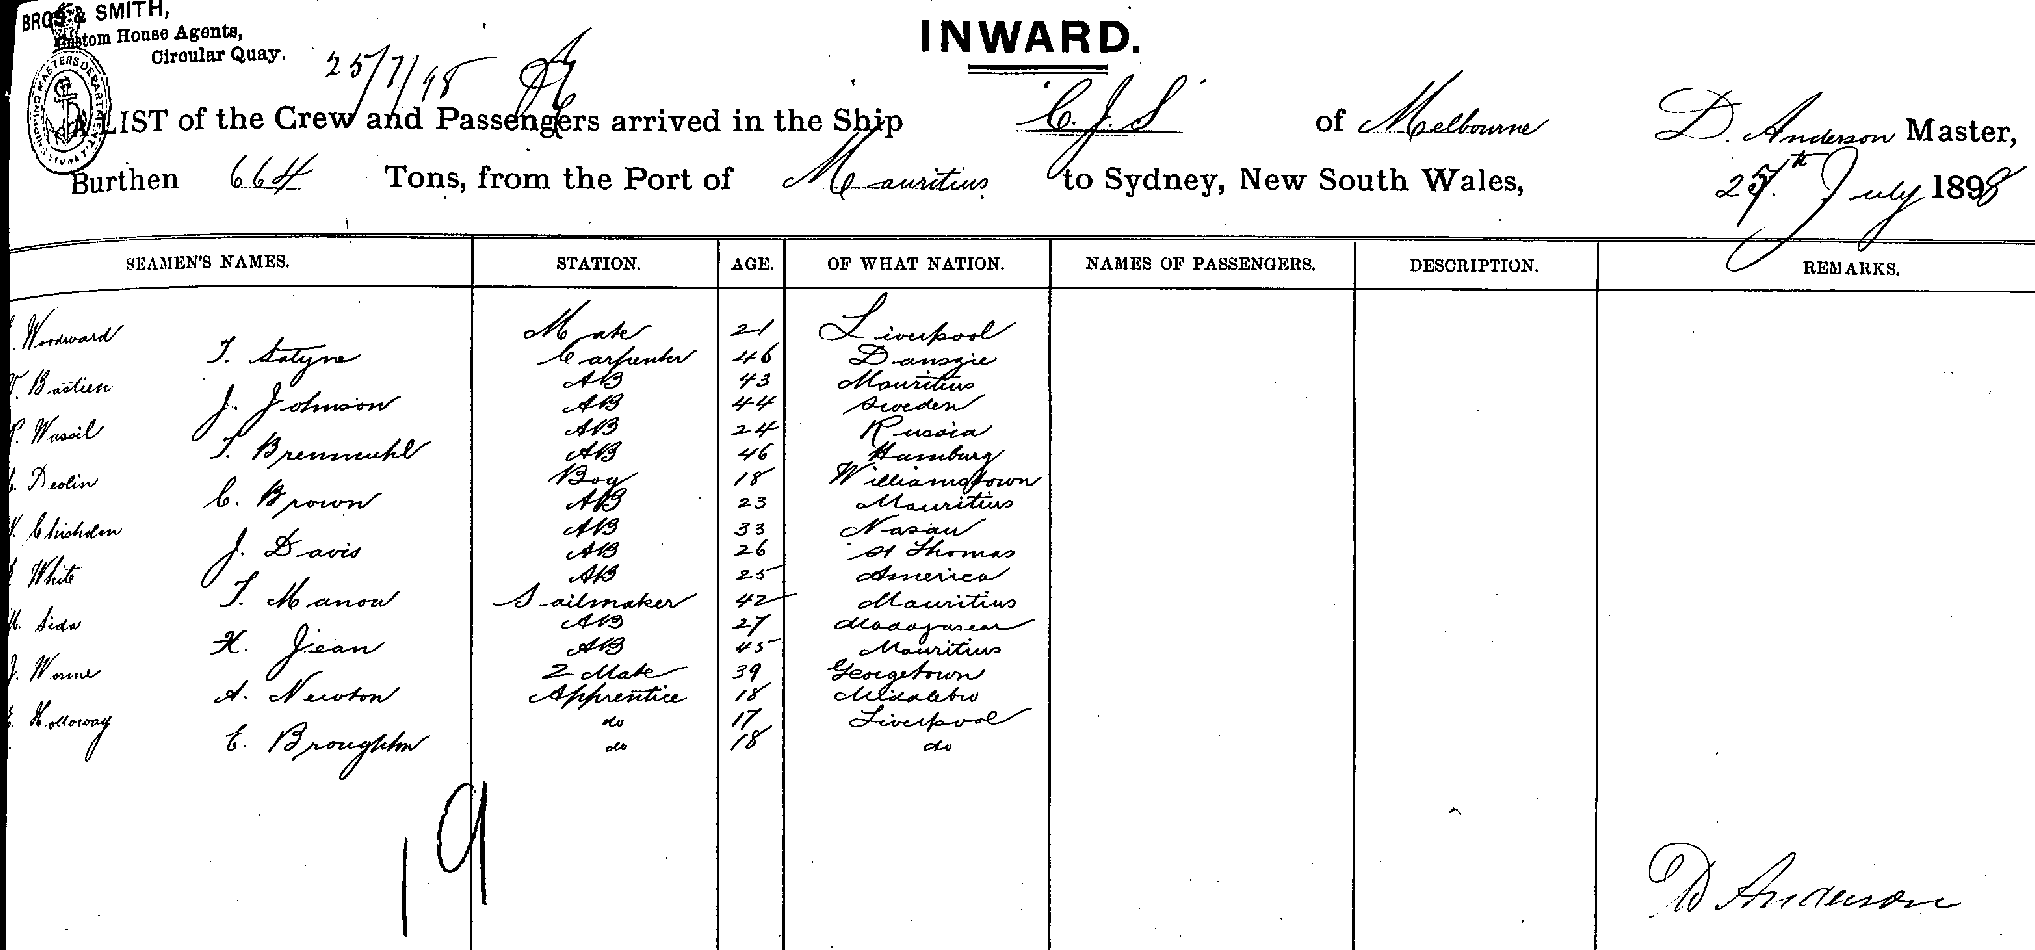 BROS & SMITH,
Custom House Agents,
Circular Quay.
25/7/98
INWARD.
A LIST of the Crew and Passengers arrived in the Ship "C.J.S" of Melbourne D. Anderson Master,
Burthen 664 Tons, from the Port of Mauritius to Sydney, New South Wales, 25th July 1898
SEAMEN'S NAMES. STATION. AGE. OF WHAT NATION. NAMES OF PASSENGERS. DESCRIPTION. REMARKS.
Woodward Mate 21 Liverpool
T. Carpenter 46 Danszie
Bastien AB 43 Mauritius
J. Johnson AB 44 Sweden
Wassil AB 24 Russia
T. Brenmuhl AB 46 Hamburg
Deolin Boy 18 Williamstown
C. Brown AB 23 Mauritius
AB 33 Nasau
J. Davis AB 26 St Thomas
White AB 25 America
T. Manou Sailmaker 42 Mauritius
Sida AB 27 Madagascar
H. Jean AB 45 Mauritius
J. 2 Mate 39 Georgetown
A. Newton Apprentice 18
Holloway do 17 Liverpool
C. do 18 do
19
D Anderson